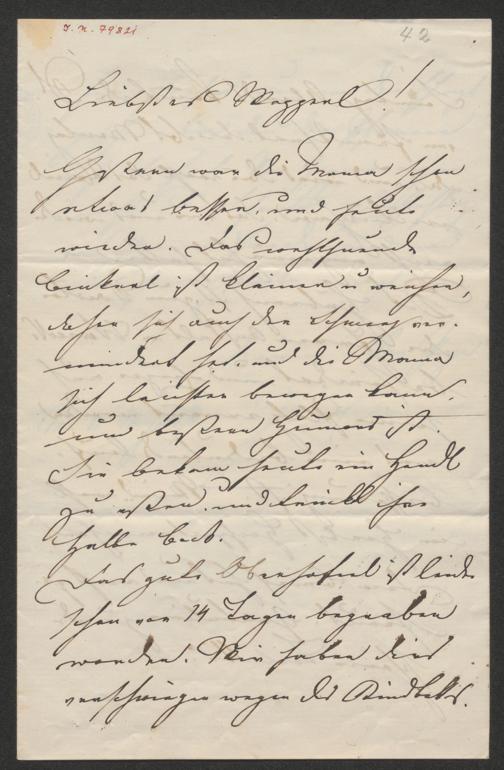 I. N. 79821
42
Liebstes Wopperl!
Gestern war die Mama schon
etwas besser, und heute
wieder. Das wehthuende
Binkerl ist kleiner u weicher,
daher sich auch der Schmerz ver-
mindert hat, und die Mama
sich leichter bewegen kann,
und bessern Humors ist.
Sie bekam heute ein Hendl
zu essen, und trinkt ihr
Halbe Bock.
Das gute ist leider
schon vor 14 Tagen begraben
worden. Wir haben dies
verschwiegen wegen des Kindbettes.